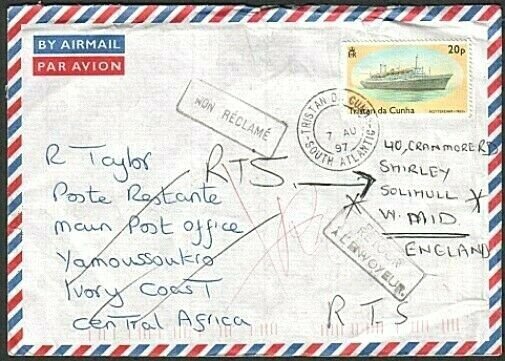 BY AIRMAIL
PAR AVION
20p
Tristan da Cunha
TRISTAN DA CUNHA
7 AU
97
SOUTH ATLANTIC
NON RÉCLAMÉ
R Taylor
Poste Restante
main Post office
Yamoussoukro
Ivory Coast
Central Africa
RTS
40, CRANMORE RD
SHIRLEY
SOLIHULL
W. MID
ENGLAND
RETOUR
A L'ENVOYEUR
RTS